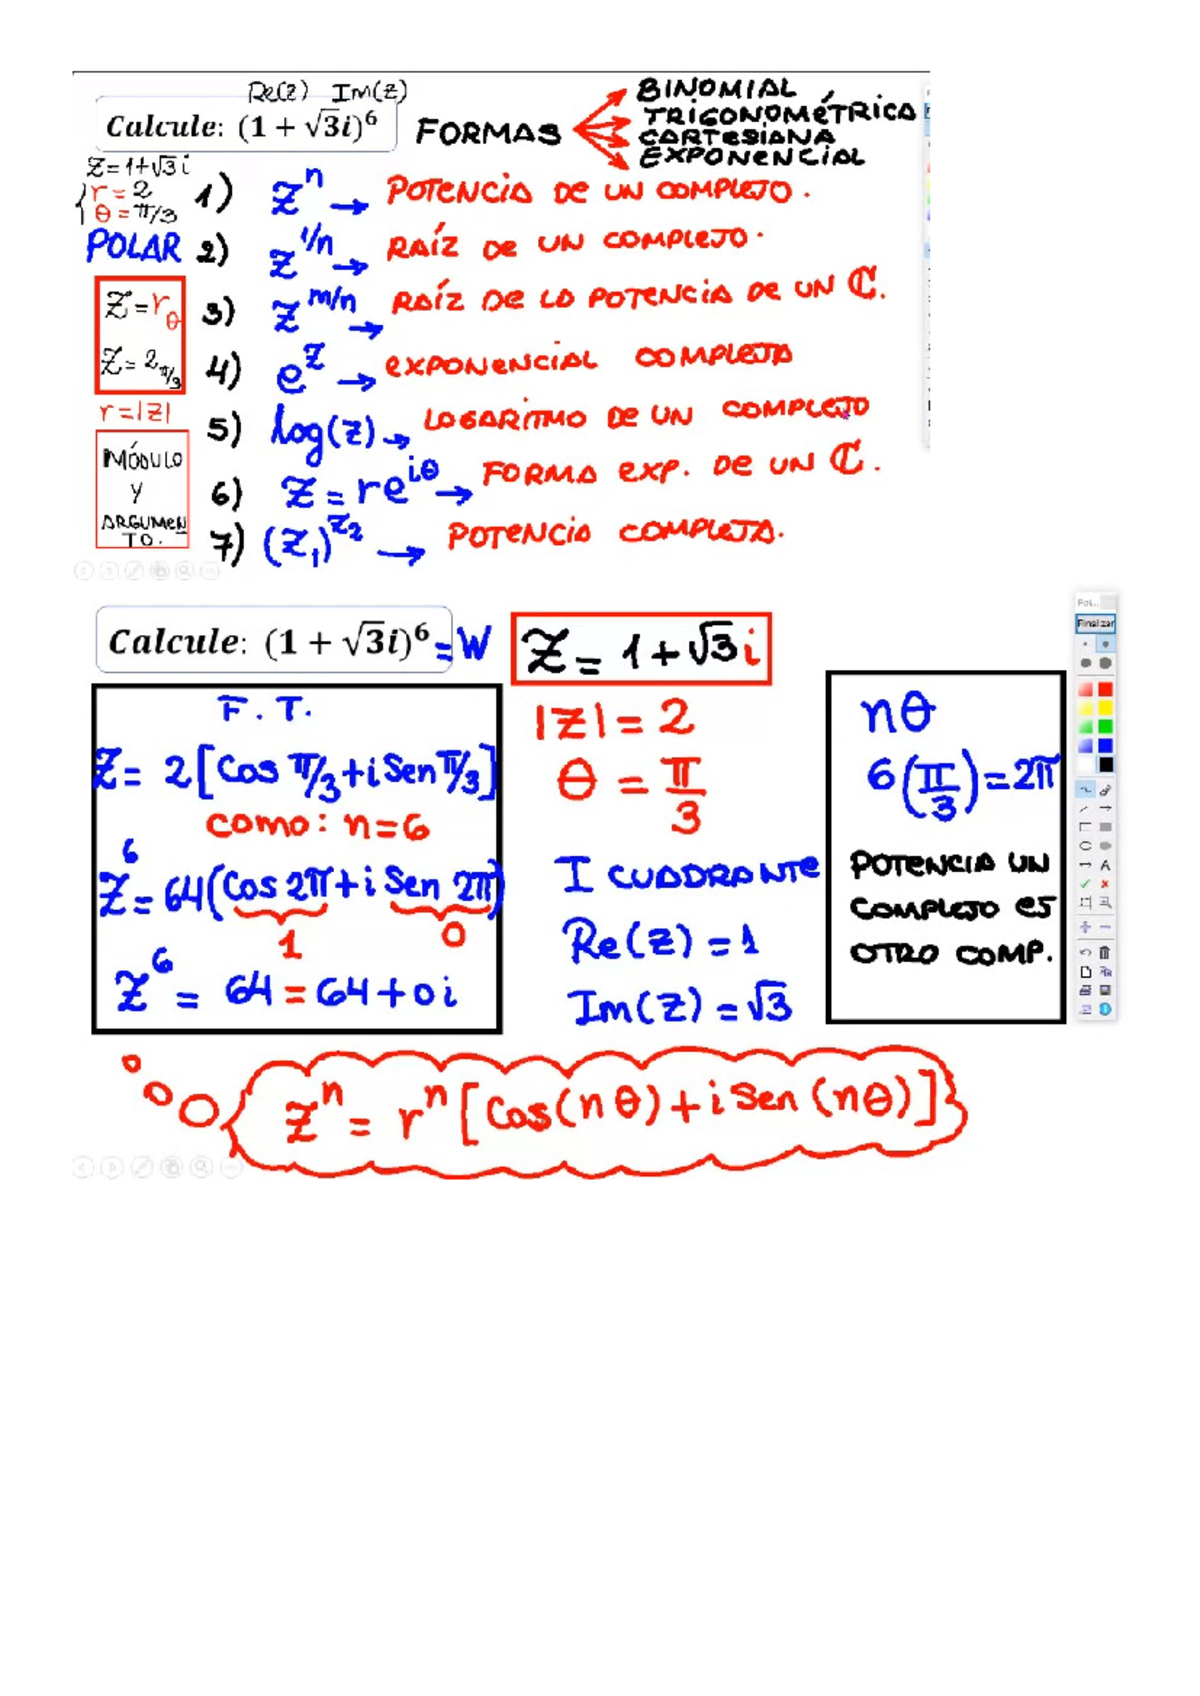 Re(z) Im(z)
Calcule: (1 + √3i)⁶
FORMAS
BINOMIAL
TRIGONOMÉTRICA
CARTESIANA
EXPONENCIAL
Z=1+√3 i
r = 2
θ = π/3
POLAR
Z = r_θ
Z = 2_π/3
r = |z|
MÓDULO
Y
ARGUMEN
TO.
1) Zⁿ → POTENCIA DE UN COMPLEJO.
2) Z^1/n → RAÍZ DE UN COMPLEJO.
3) Z^m/n → RAÍZ DE LA POTENCIA DE UN ℂ.
4) e^Z → EXPONENCIAL COMPLEJA
5) log(z) → LOGARITMO DE UN COMPLEJO
6) Z = re^iθ → FORMA EXP. DE UN ℂ.
7) (Z₁)^Z₂ → POTENCIA COMPLEJA.
Calcule: (1 + √3i)⁶ = W
Z = 1+√3 i
F. T.
Z = 2[Cos π/3 + i Sen π/3]
como: n=6
Z⁶ = 64(Cos 2π + i Sen 2π)
1 0
Z⁶ = 64 = 64 + 0i
|Z| = 2
θ = π/3
I CUADRANTE
Re(Z) = 1
Im(Z) = √3
nθ
6(π/3) = 2π
POTENCIA UN
COMPLEJO ES
OTRO COMP.
Zⁿ = rⁿ[Cos(nθ) + i Sen(nθ)]
Pol...
Finalizar
A